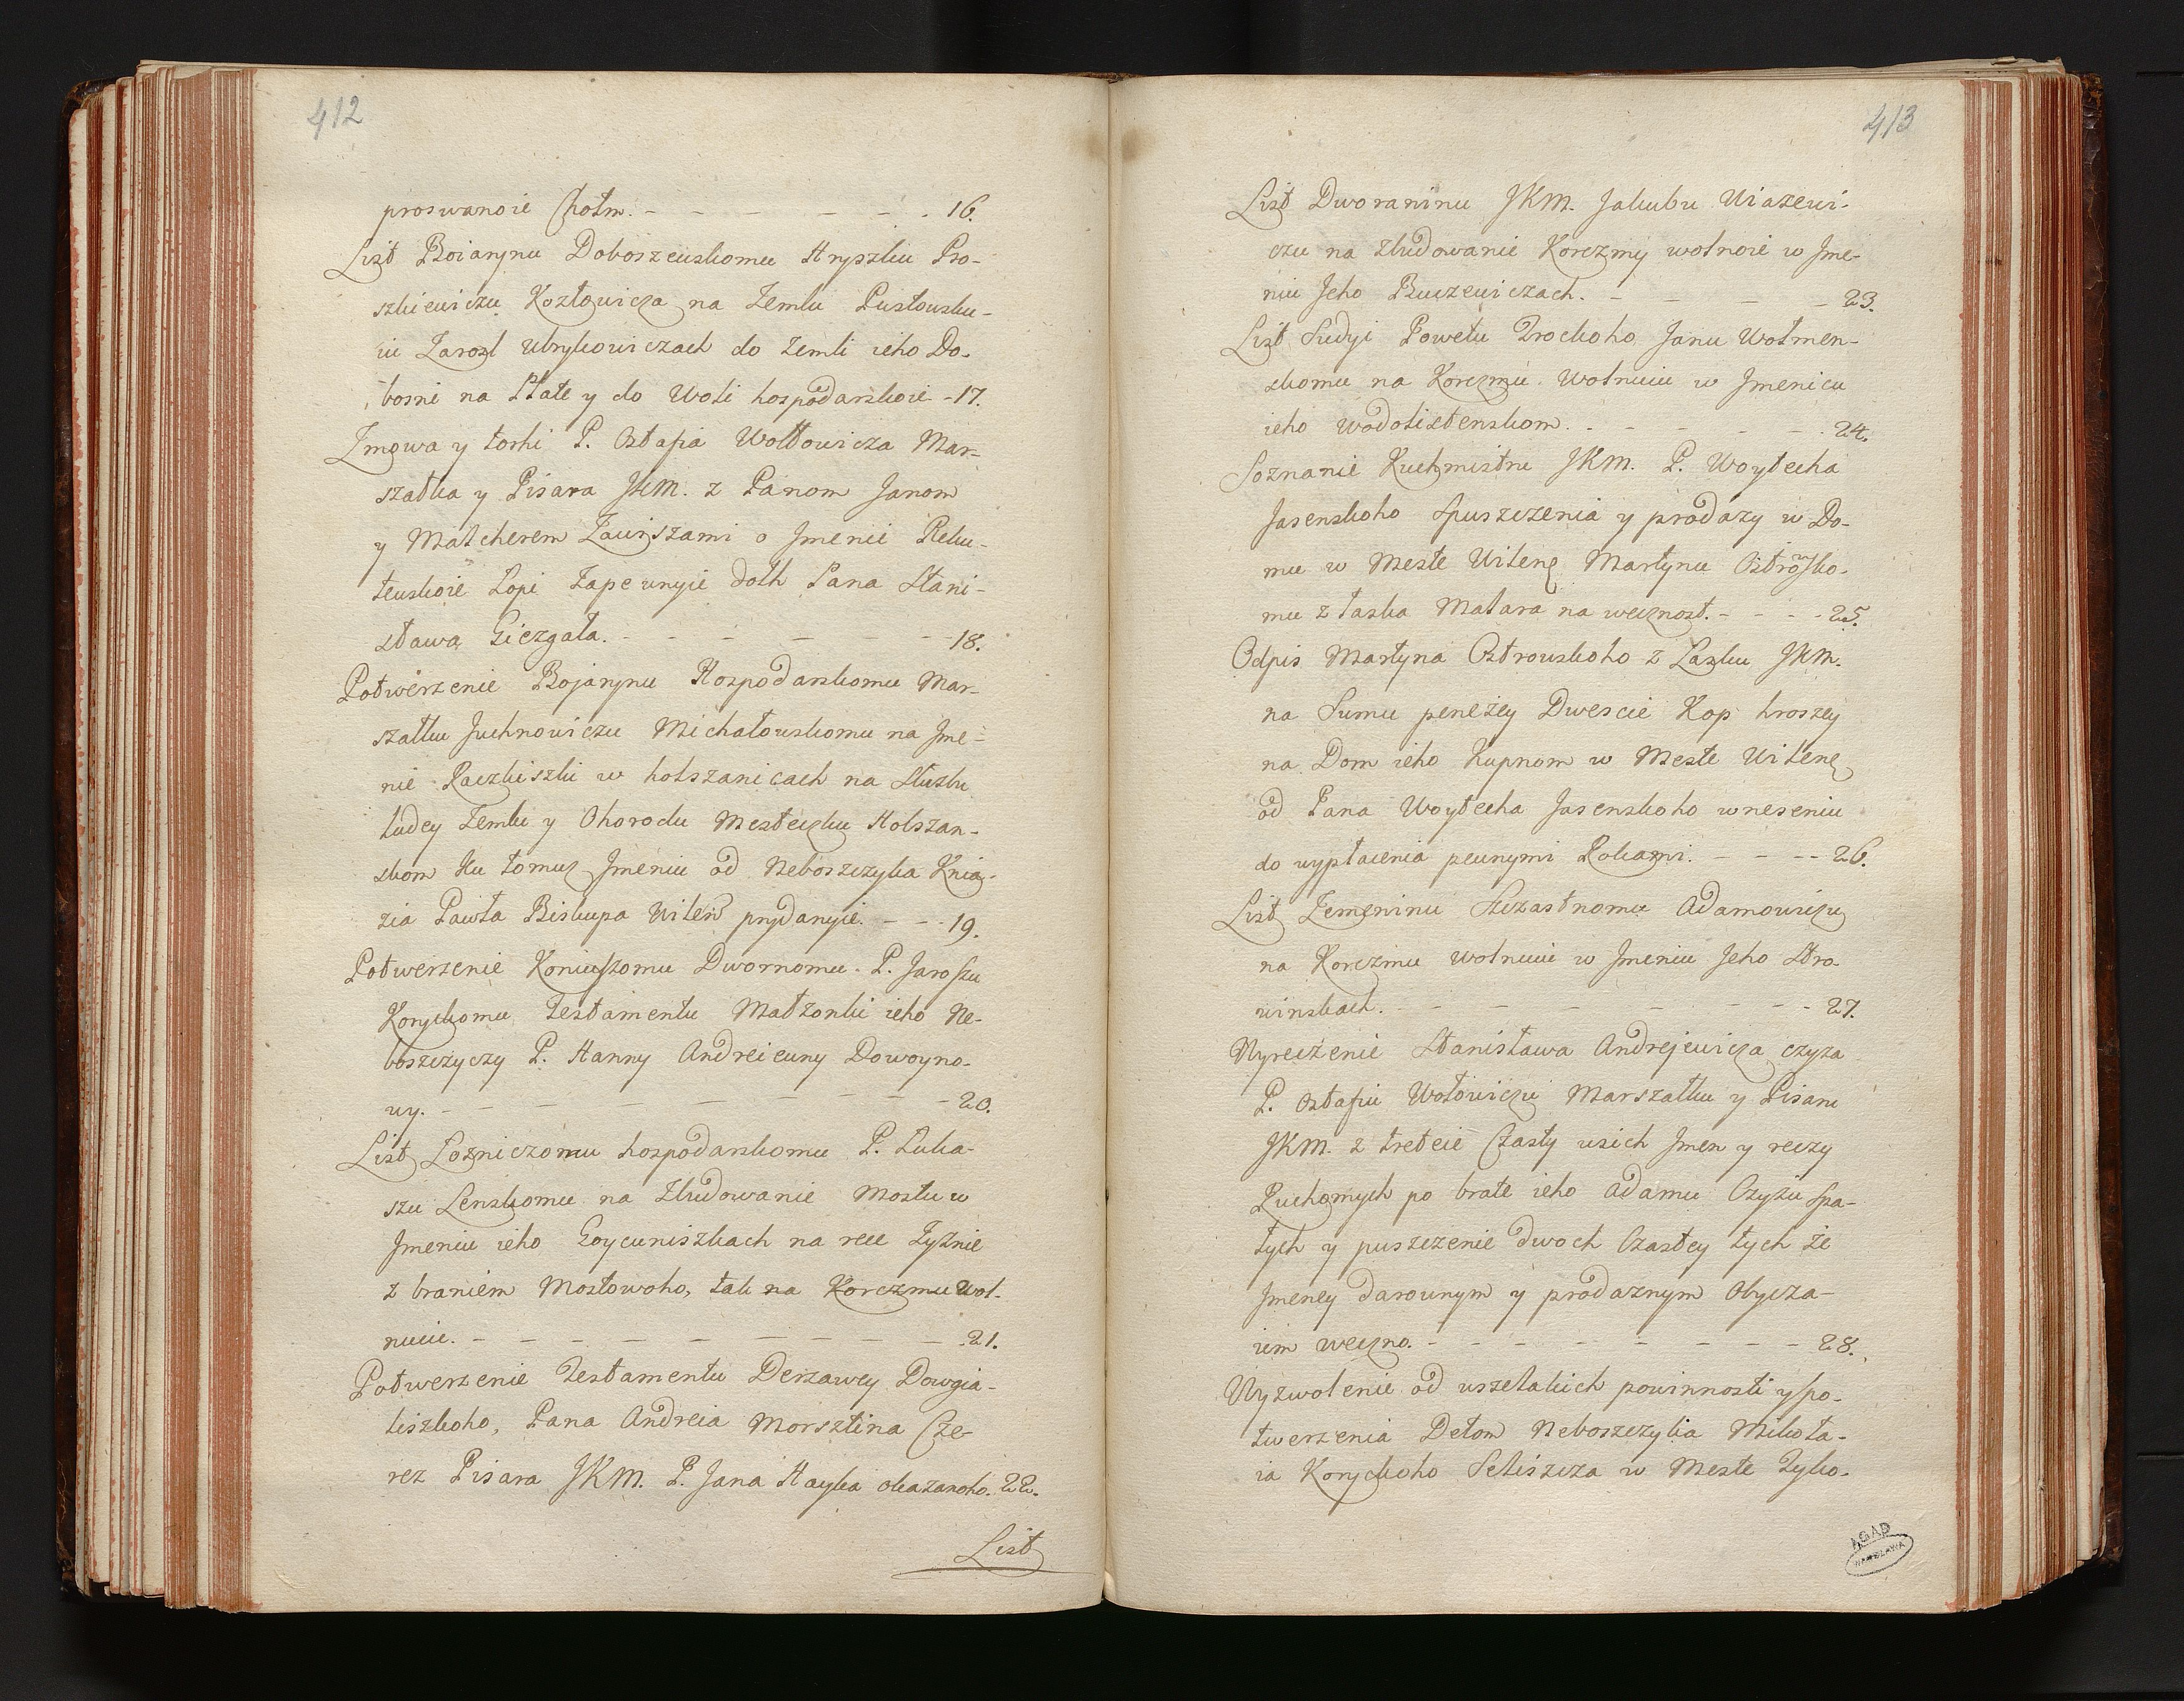 412
proswanoie Chołm. - - - - - - 16.
List Boiarynu Doboszewskomu Hryszku Pro-
szkiewiczu Kozłowicza na Zemlu Pustowsku-
iu Zarosl Ubrykowiczach do Zemli ieho Do-
bosni na Płate y do Woli hospodarskoie - 17.
Zmowa y torhi P. Ostafia Wołłowicza Mar-
szałka y Pisara JKM. z Panom Janom
y Malcherem Zawiszami o Jmenie Reku-
tewskoie Lopi Zapewnyie dołh Pana Stani-
sława Giezgała. - - - - - - 18.
Potwerzenie Bojarynu Hospodarskomu Mar-
szałku Juchnowiczu Michałowskomu na Jme-
nie Raczkiszki w holszanicach na Służbu
ludey Zemlu y Ohorodu Mesteczku Holszan-
skom Ku tomuz Jmeniu od Neboszczyka Knia-
zia Pawła Biskupa Wileń prydanyie. - - - 19.
Potwerzenie Koniuszomu Dwornomu P. Jaroszu
Koryckomu Testamentu Małżonki ieho Ne-
boszczyczy P. Hanny Andreiewny Dowoyno-
wy. - - - - - - - - 20.
List Łozniczomu hospodarskomu P. Łuka-
szu Lenskomu na Zbudowanie Mostu w
Jmeniu ieho Goycuniszkach na rece Zyżnie
z braniem Mostowoho, tak na Korczmu Wol-
nuiu. - - - - - - - - 21.
Potwerzenie Testamentu Derzawcy Dowgia-
liszkoho, Pana Andreia Morsztina Cze-
rez Pisara JKM. P. Jana Hayka okazanoho. 22.
List
413
List Dworaninu JKM. Jakubu Wiazewi-
czu na Zbudowanie Korczmy wolnoie w Jme-
niu Jeho Buczewiczach. - - - - 23.
List Sudyi Powetu Trockoho Janu Wołmen-
skomu na Korczmu Wolnuiu w Jmenicu
ieho Wodolistenskom. - - - - - 24.
Soznanie Kuchmistru JKM. P. Woytecha
Jasenskoho Spuszczenia y prodazy w Do-
mu w Meste Wilenẹ Martynu Ostrowsko-
mu z łaska Malara na wecznost. - - - - 25.
Odpis Martyna Ostrowskoho z Łazku JKM.
na Sumu penezey Dwescie Kop hroszey
na Dom ieho Kupnom w Meste Wilene
od Pana Woytecha Jasenskoho wneseniu
do wypłacenia pewnymi Rokami. - - - - 26.
List Zemeninu Szczastnomu Adamowiczu
na Korczmu wolnuiu w Jmeniu Jeho Stra-
winskach. - - - - - - - 27.
Wyreczenie Stanisława Andrejewicza czyza
P. Ostafiu Wołowiczu Marszałku y Pisaru
JKM. z treteie Czasty wsich Jmen y reczy
Ruchomych po brate ieho Adamu Czyzu Spa-
łych y puszczenie dwoch Czastey tych że
Jmeney darownym y prodaznym Obycza-
iem weczno. - - - - - - - 28.
Wyzwolenie od wszelakich powinnosti y po-
twerzenia Detom Neboszczyka Mikoła-
ia Koryckoho Seliszcza w Meste Tyko-
AGAD
WARSZAWA